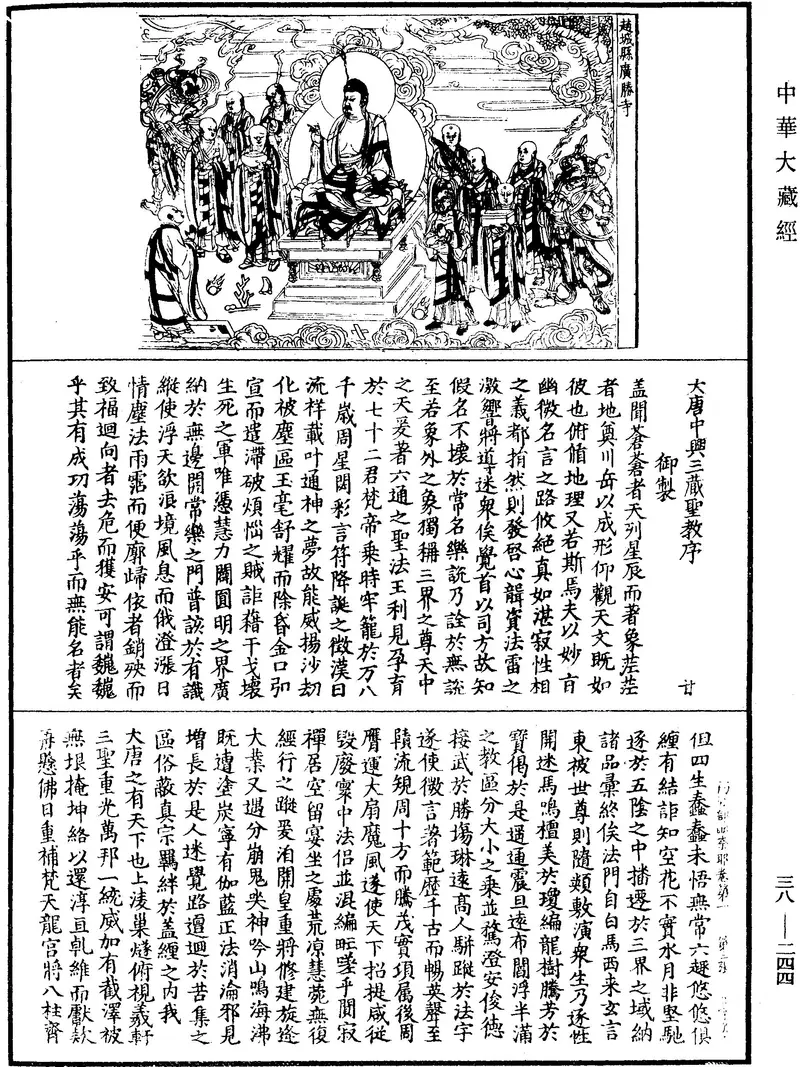 中華大藏經
三八—二四四
趙城縣廣勝寺
大唐中興三藏聖教序
御製
甘
盖聞蒼蒼者天列星辰而著象茫茫
者地奠川岳以成形仰觀天文既如
彼也俯循地理又若斯焉夫以妙育
幽微名言之路攸絕真如湛寂性相
之義都捐然則發啓心韻資法雷之
激響將導迷衆俟覺首以司方故知
假名不壞於常名樂說乃詮於無說
至若象外之象獨稱三界之尊天中
之天爰著六通之聖法王利見孕育
於七十二君梵帝乘時牢籠於万八
千歲周星閟彩言符降誕之徵漢日
流祥載叶通神之夢故能威揚沙劫
化被塵區玉毫舒耀而除昏金口弘
宣而遣滯破煩惱之賊詎藉干戈壞
生死之軍唯憑慧力闢圓明之界廣
納於無邊開常樂之門普該於有識
縱使浮天欲浪境風息而俄澄漲日
情塵法雨霑而便廓歸依者銷殃而
致福迴向者去危而獲安可謂巍巍
乎其有成功蕩蕩乎而無能名者矣
但四生蠢蠢未悟無常六趣悠悠俱
纏有結詎知空花不實水月非堅馳
逐於五陰之中播遷於三界之域納
諸品彙終俟法門自白馬西来玄言
東被世尊則隨類敷演衆生乃逐性
開迷馬鳴檀美於瓊編龍樹騰芳於
寶偈於是遐通震旦遠布閻浮半滿
之教區分大小之乘並騖澄安俊德
接武於勝場琳遠高人駢蹤於法宇
遂使微言著範歷千古而暢英聲至
賾流規周十方而騰茂實項屬後周
膺運大扇魔風遂使天下招提咸從
毀廢寰中法侶並混編甿遂乎閴寂
禪居空留宴坐之處荒凉慧菀無復
經行之蹤爰洎開皇重將修建旋逢
大業又遇分崩鬼哭神吟山鳴海沸
既遭塗炭寧有伽藍正法消淪邪見
增長於是人迷覺路邅迴於苦集之
區俗敵真宗羈絆於盖纏之内我
大唐之有天下也上淩巢燧俯視羲軒
三聖重光萬邦一統威加有截澤被
無垠掩坤絡以還淳亘乾維而獻款
再懸佛日重補梵天龍宮將八柱齊